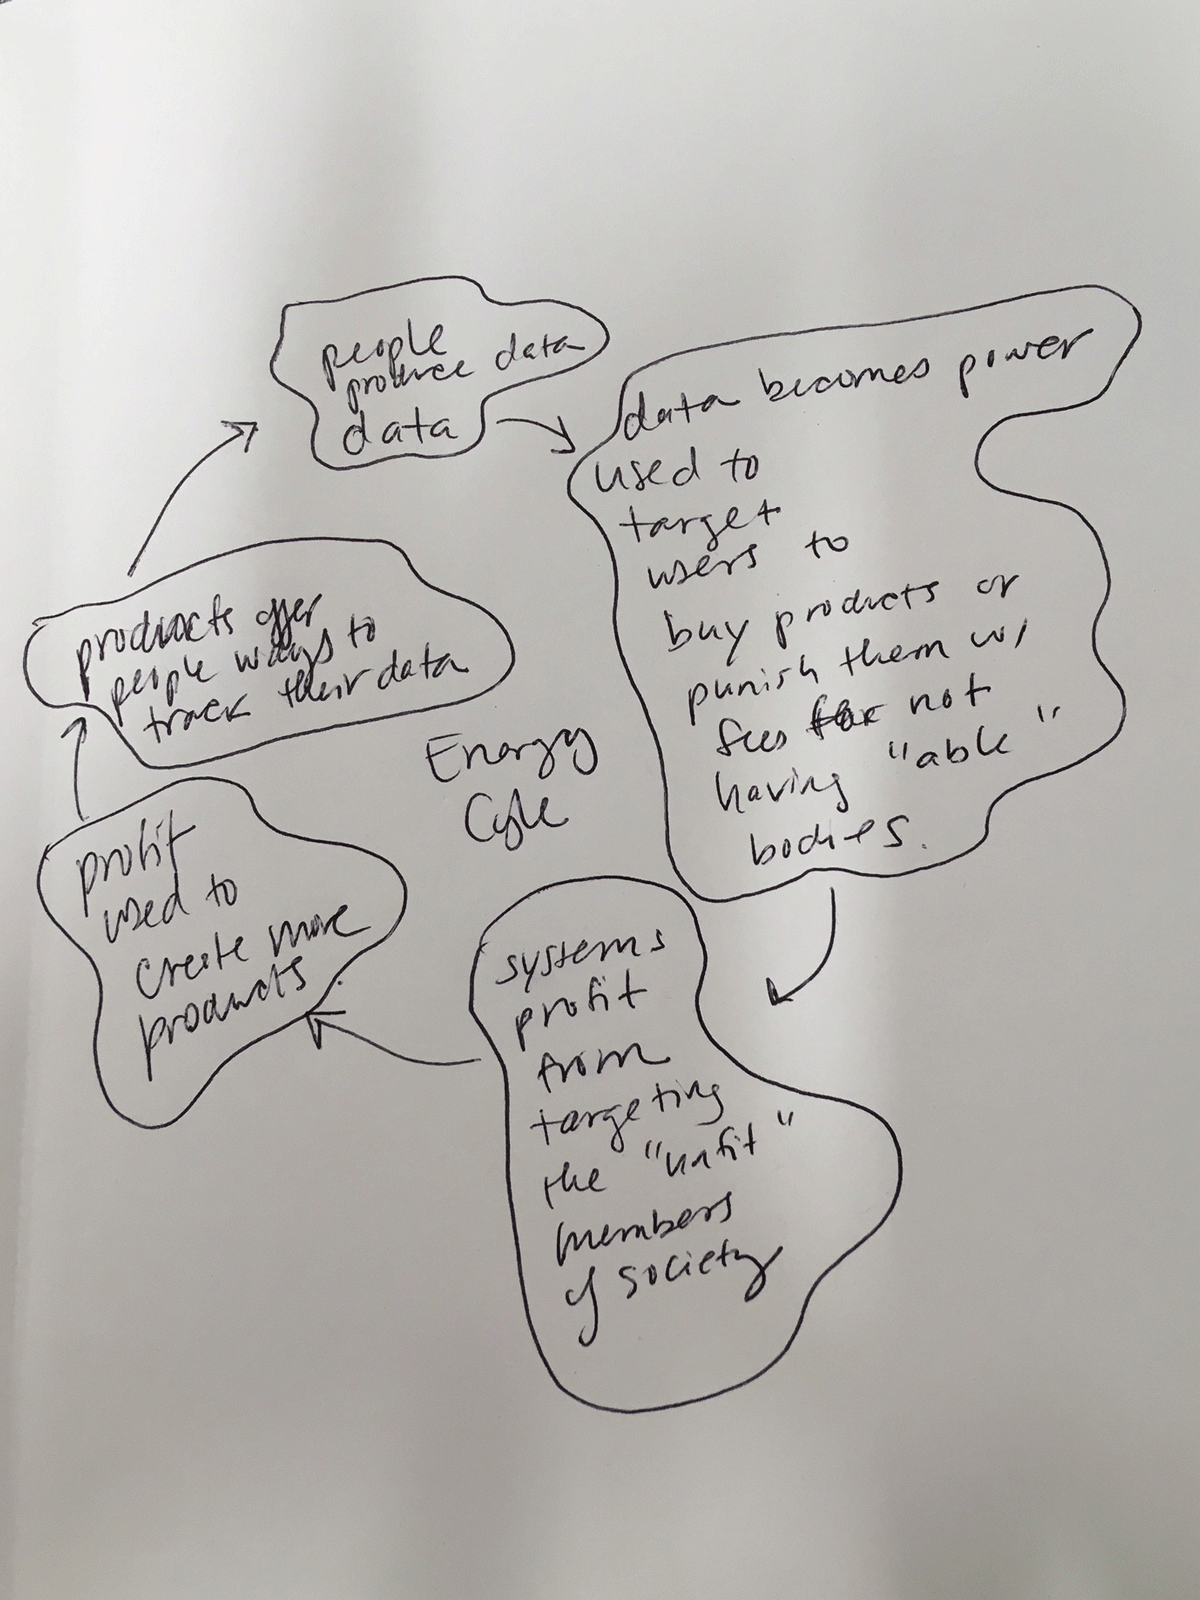 people
produce data
data
data becomes power
used to
target
users to
buy products or
punish them w/
fees for not
having "able"
bodies.
systems
profit
from
targeting
the "unfit"
members
of society
profit
used to
create more
products
products offer
people ways to
track their data
Energy
Cycle